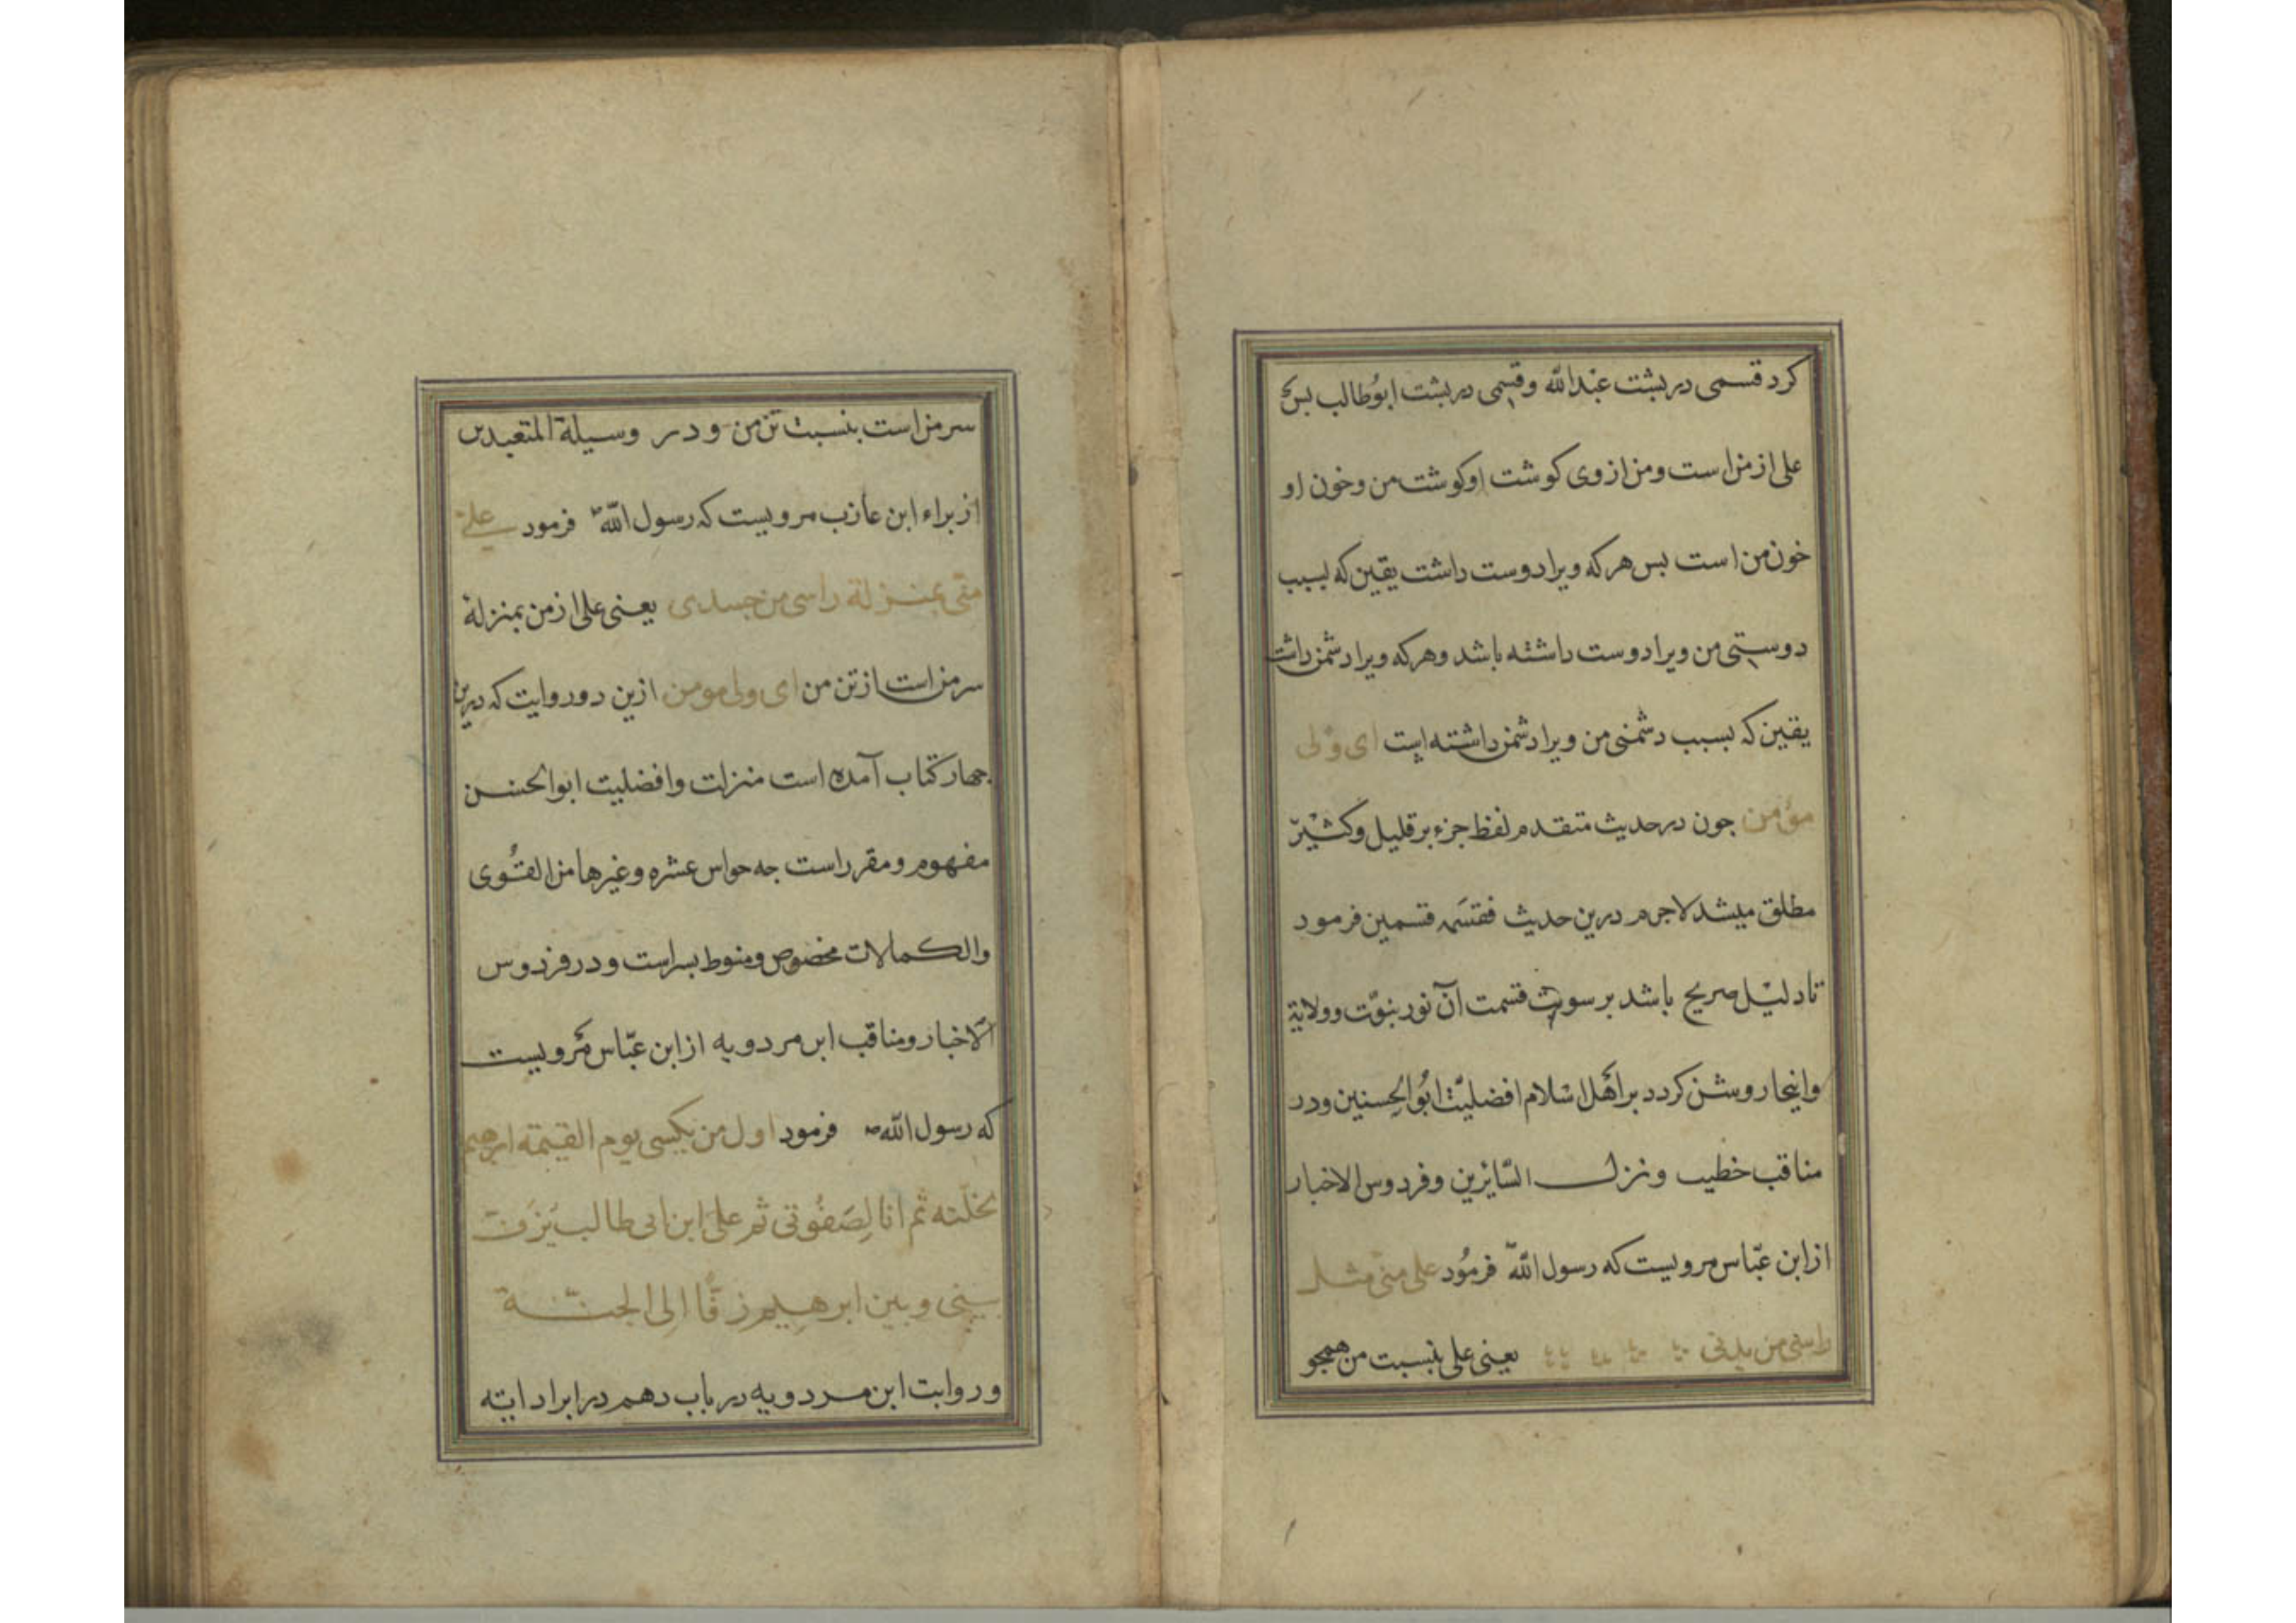 کرد قسمی در بشت عبدالله وقسمی در بشت ابوُطالب بس
علی از من است ومن از وی کوشت او کوشت من وخون او
خون من است بس هرکه ویرا دوست داشت یقین که بسبب
دوستی من ویرا دوست داشته باشد وهرکه ویرا دشمن داشت
یقین که بسبب دشمنی من ویرا دشمن داشته است ای ولی
مؤمن جون در حدیث متقدم لفظ جزء بر قلیل وکثیر
مطلق میشد لاجرم درین حدیث فقسَمه قسمین فرمود
تا دلیل صریح باشد بر سویت قسمت آن نور بنوّت وولایة
واینجا روشن کردد بر اهل اسلام افضلیّت ابُوالحسنین ودر
مناقب خطیب ونزل السّایرین وفردوس الاخبار
از ابن عبّاس مرویست که رسول الله فرمُود علی منی مثل
راسی من بدنی یعنی علی بنسبت من همجو
سر من است بنسبت تن من ودر وسیلة المتعبدین
از براء ابن عازب مرویست که رسول الله فرمود علی
منی بمنزلة راسی من جسدی یعنی علی از من بمنزلة
سر من است از تن من ای ولی مومن ازین دو روایت که درین
جهار کتاب آمده است منزلت وافضلیت ابوالحسن
مفهوم ومقرر است جه حواس عشره وغیرها من القُوی
والکمالات مخصوص ومنوط بسر است ودر فردوس
الاخبار ومناقب ابن مردویه از ابن عبّاس مرویست
که رسول الله فرمود اول من یکسی یوم القیمة ابرهیم
بخلّته ثم انا لِصَفُوتی ثم علی ابن ابی طالب یَزفّ
بینی وبین ابرهیم زفًّا الی الجنّة
وروایت ابن مردویه در باب دهم در ایراد ایته